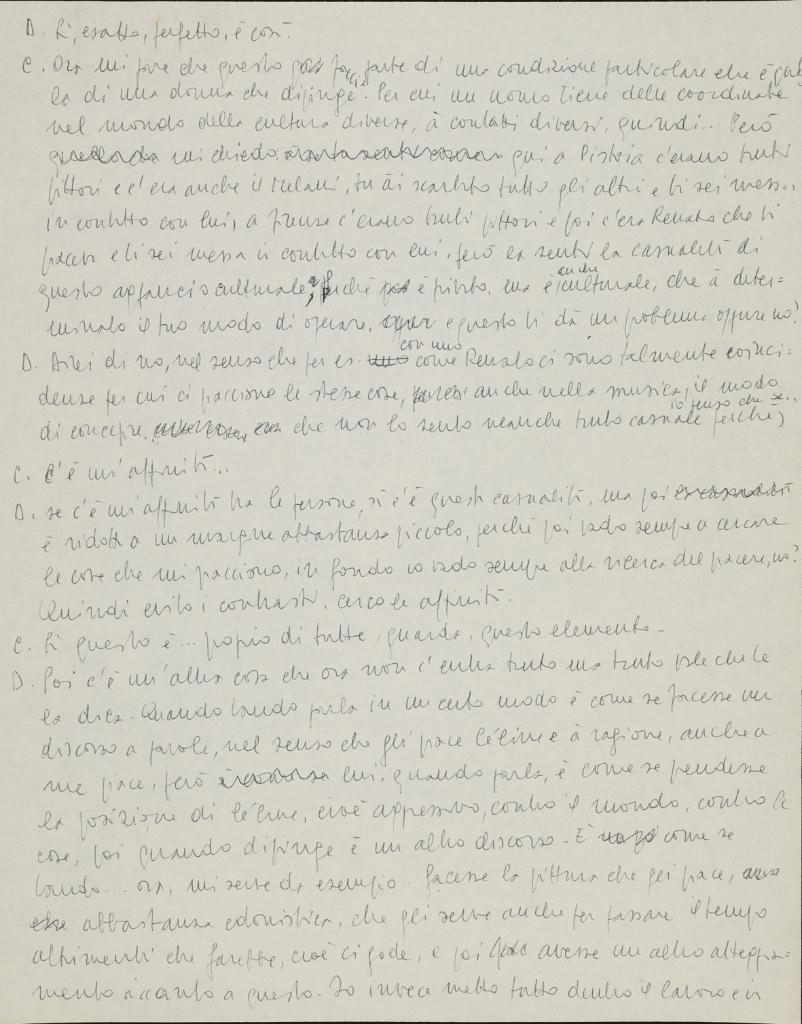 D. Sì, esatto, perfetto, è così.
C. Ora mi pare che questo faccia parte di una condizione particolare che è quel=
la di una donna che dipinge. Per cui un uomo tiene delle coordinate
nel mondo della cultura diverse, à contatti diversi, quindi... Però
mi chiedo qui a Pistoia c'erano tanti
pittori e c'era anche il Melani, tu ài scartato tutto gli altri e ti sei messa
in contatto con lui, a Firenze c'erano tanti pittori e poi c'era Renato che ti
piaceva e ti sei messa in contatto con lui, però la senti la casualità di
questo approccio culturale, perché è privato, ma è anche culturale, che à deter=
minato il tuo modo di operare, e questo ti dà un problema oppure no?
D. Direi di no, nel senso che per es. con uno come Renato ci sono talmente coinci=
denze per cui ci piacciono le stesse cose, anche nella musica, il modo
di concepire che non lo sento neanche tanto casuale perché, io penso che se...
C. C'è un'affinità...
D. se c'è un'affinità tra le persone, sì c'è questa casualità, ma poi
è ridotta a un margine abbastanza piccolo, perché poi vado sempre a cercare
le cose che mi piacciono, in fondo io vado sempre alla ricerca del piacere, no?
Quindi evito i contrasti, cerco le affinità.
C. Sì questo è... proprio di tutte, guarda, questo elemento.
D. Poi c'è un'altra cosa che ora non c'entra tanto ma tanto vale che te
la dica. Quando Lando parla in un certo modo è come se facesse un
discorso a parole, nel senso che gli piace Céline e à ragione, anche a
me piace, però lui, quando parla, è come se prendesse
la posizione di Céline, cioè aggressivo, contro il mondo, contro le
cose, poi quando dipinge è un altro discorso. È come se
Lando... ora, mi serve da esempio... facesse la pittura che gli piace,
abbastanza edonistica, che gli serve anche per passare il tempo
altrimenti che farebbe, cioè ci gode, e poi avesse un altro atteggia=
mento accanto a questo. Io invece metto tutto dentro il lavoro e in